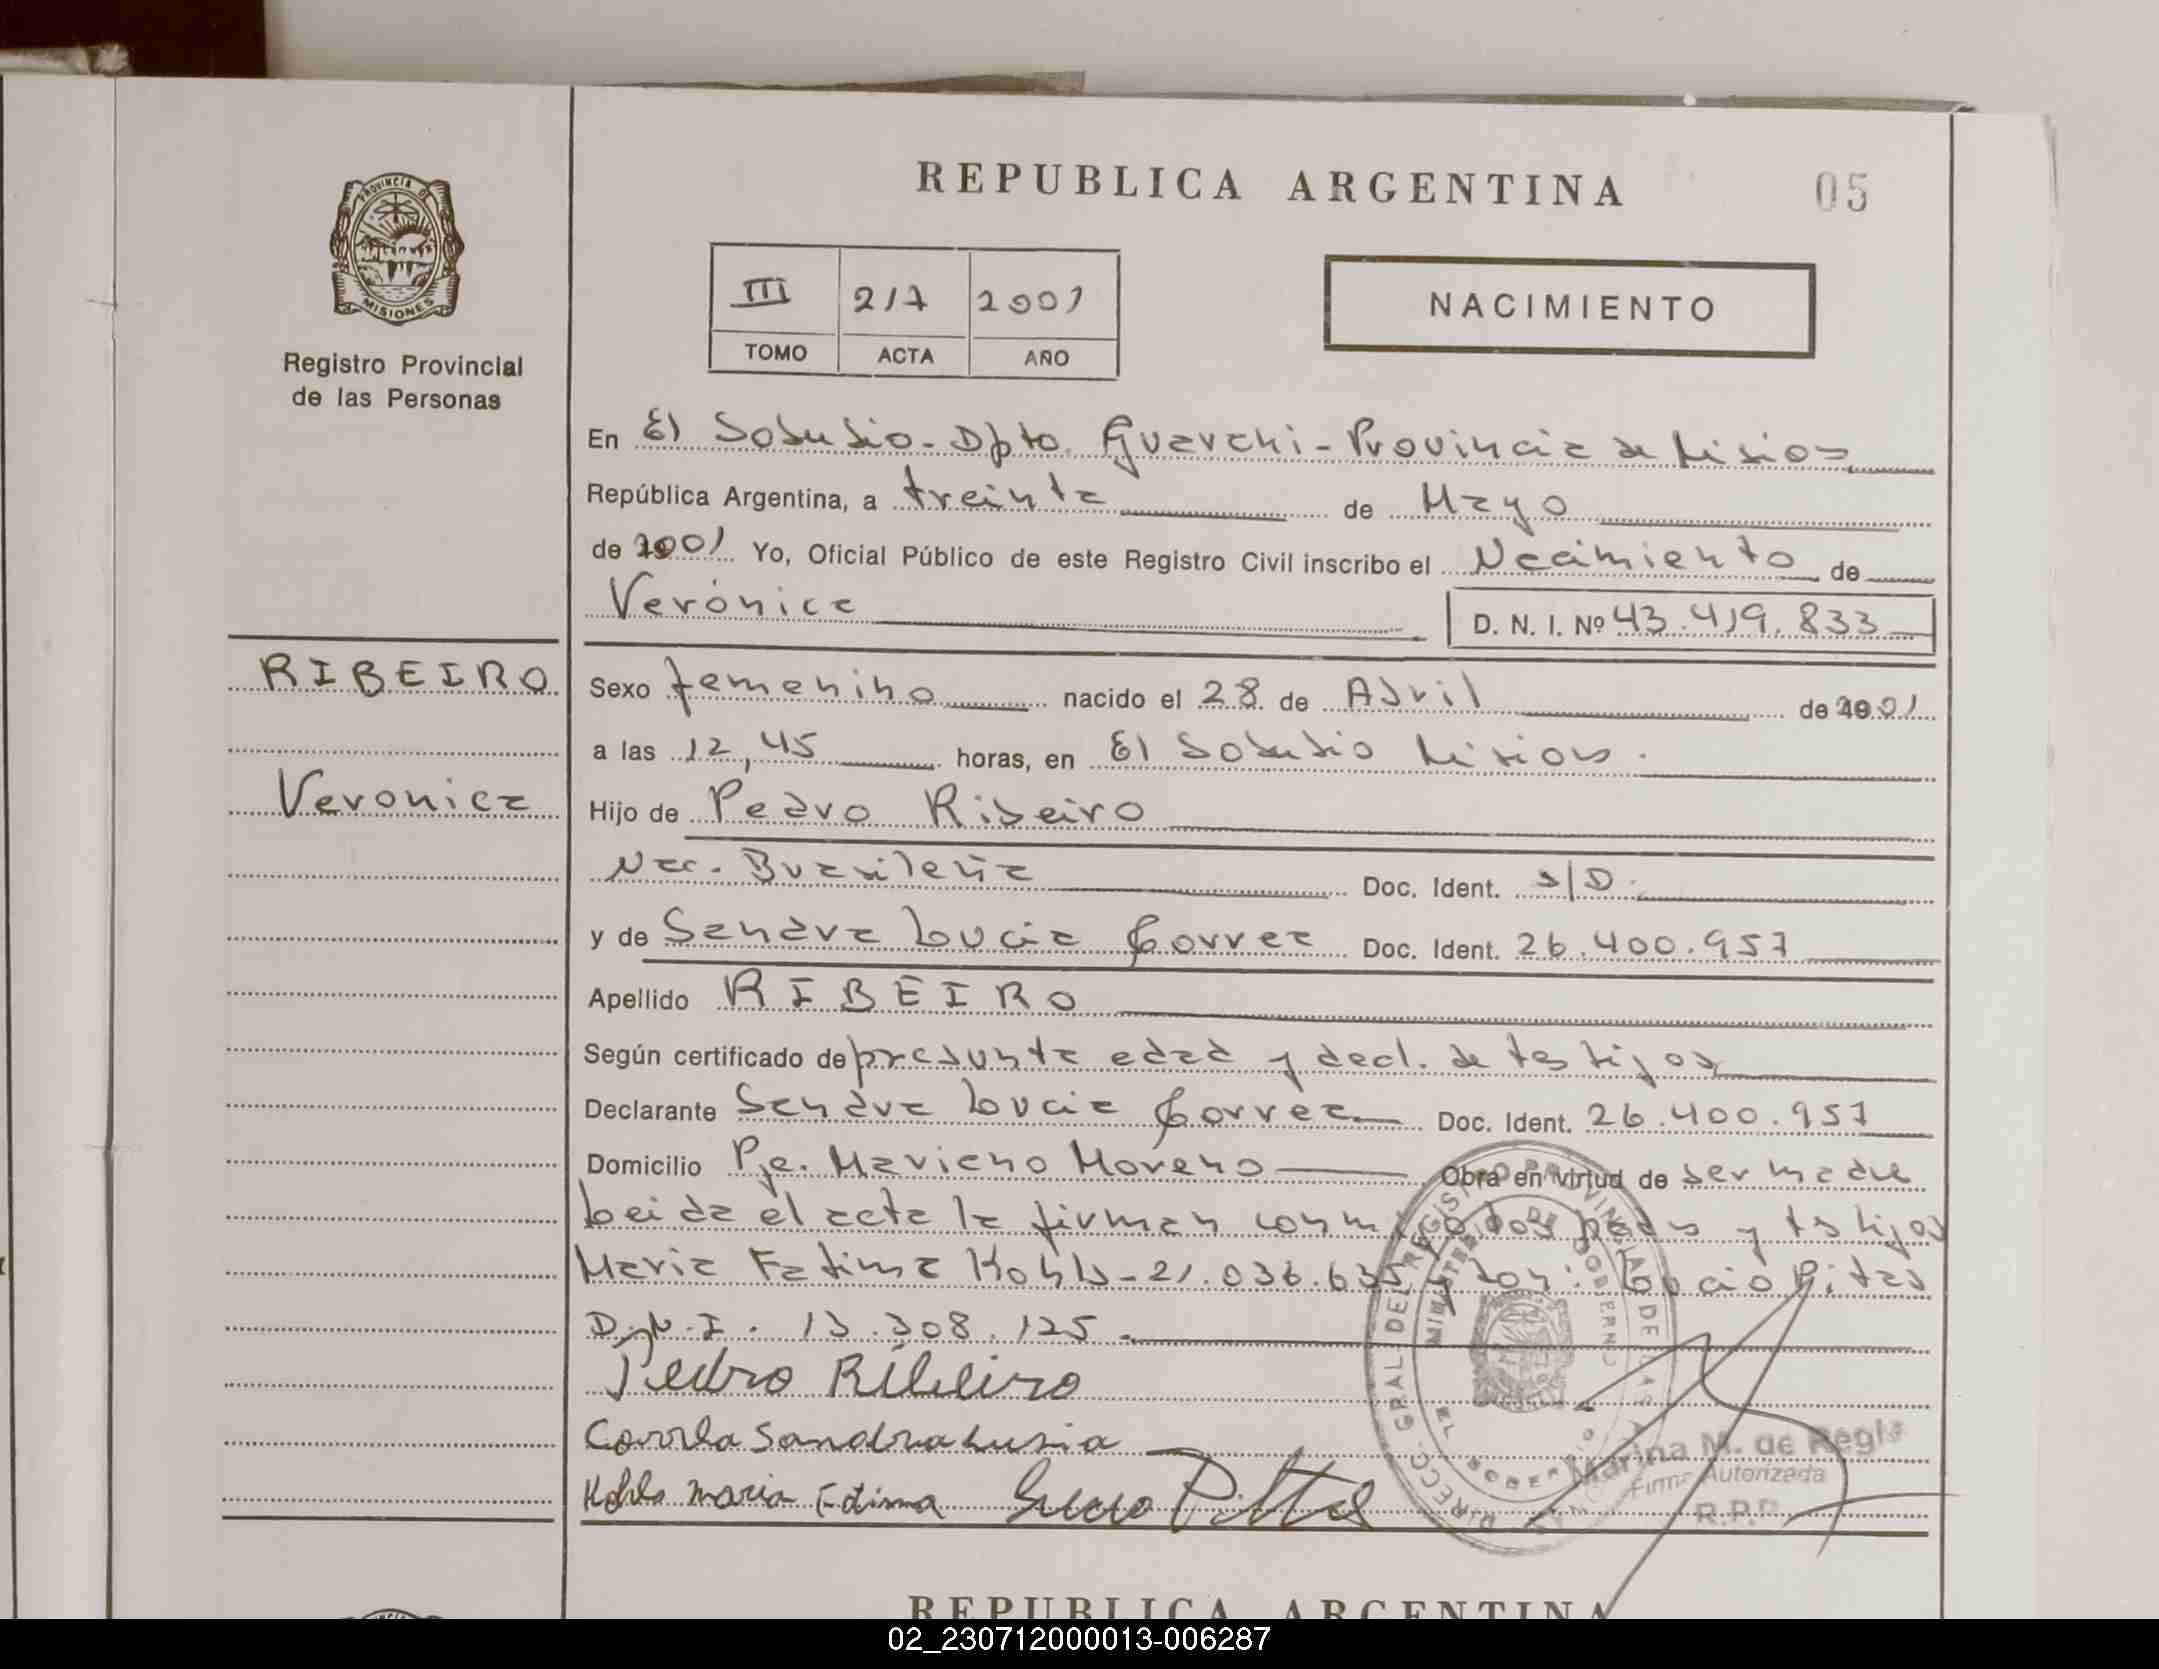 REPUBLICA ARGENTINA
05
PROVINCIA DE
MISIONES
Registro Provincial
de las Personas
III 217 2001
TOMO ACTA AÑO
NACIMIENTO
En El Soberbio - Dpto. Guarani - Provincia de Misiones
República Argentina, a treinta de Mayo
de 2001 Yo, Oficial Público de este Registro Civil inscribo el Nacimiento de
Verónica D. N. I. Nº 43.419.833
RIBEIRO
Veronica
Sexo femenino nacido el 28 de Abril de 2001
a las 12,45 horas, en El Soberbio Misiones.
Hijo de Pedro Ribeiro
Nac. Brasileña Doc. Ident. S/D.
y de Sandra Lucia Correa Doc. Ident. 26.400.957
Apellido RIBEIRO
Según certificado de presunta edad y decl. de testigos
Declarante Sandra Lucia Correa Doc. Ident. 26.400.957
Domicilio Pje. Mariano Moreno Obra en virtud de ser madre
Leida el acta la firman conmigo los padres y testigos
Maria Fatima Kohls - 21.036.635 y don: Lucio Pitas
D.N.I. 13.308.125.
Pedro Ribeiro
Correa Sandra Lusia
Kohls Maria Fatima
DIRECC. GRAL DEL REGISTRO PROVINCIAL DE LAS
MINISTERIO DE GOBIERNO
EL SOBERBIO
Marina M. de Regis
Firma Autorizada
R.P.P.
REPUBLICA ARGENTINA
02_230712000013-006287